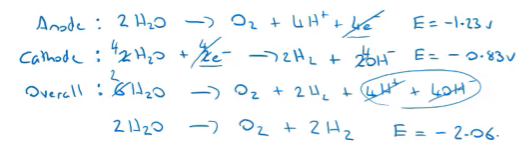 Anode : 2H₂O → O₂ + 4H⁺ + 4e⁻ E = -1.23 v
Cathode : 4 2H₂O + 4 2e⁻ → 2H₂ + 4 2OH⁻ E = - 0.83v
Overall : 2 6H₂O → O₂ + 2H₂ + 4H⁺ + 4OH⁻
2H₂O → O₂ + 2H₂ E = - 2.06.